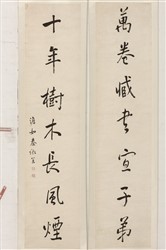 萬卷臧書宜子弟
十年樹木長風煙